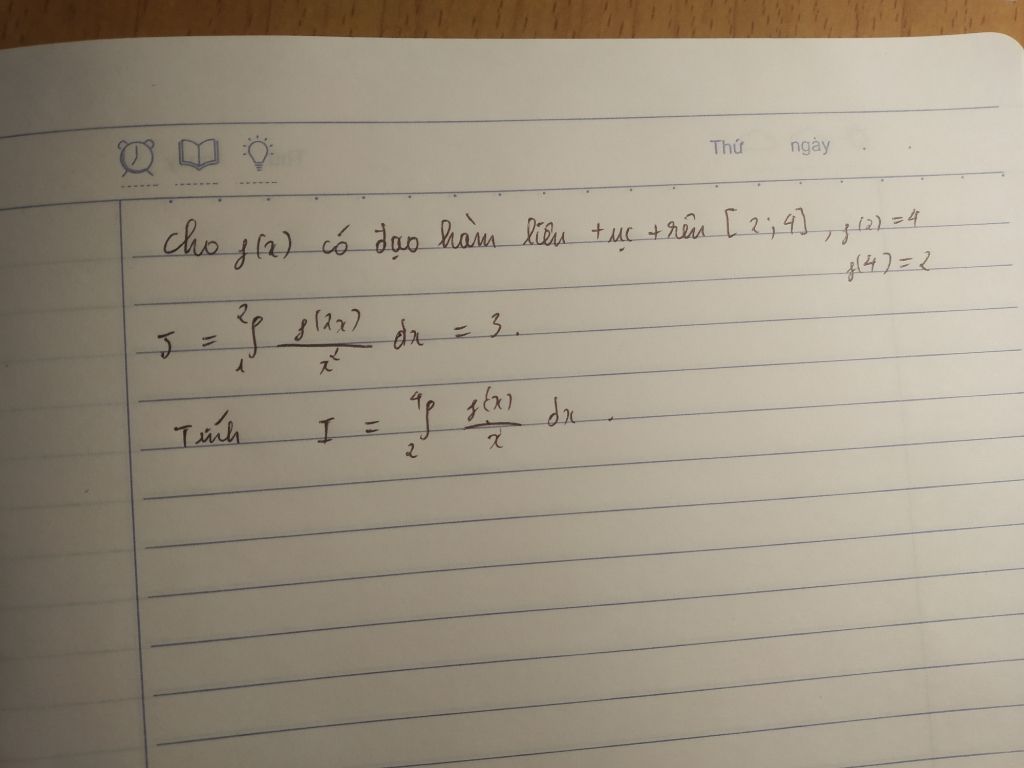 Thứ ngày
Cho f(x) có đạo hàm liên tục trên [2;4], f(2) = 4
f(4) = 2
J = ∫₁² f(2x)/x² dx = 3.
Tính I = ∫₂⁴ f(x)/x dx.